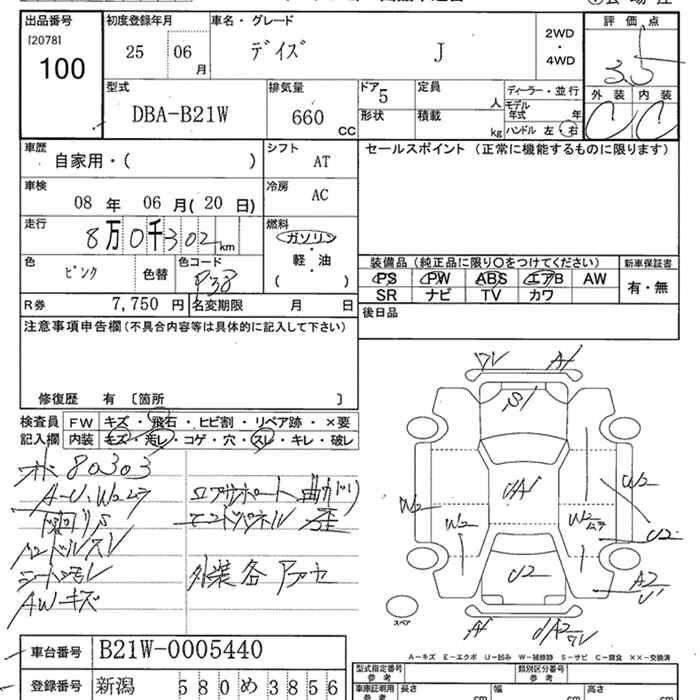 出品番号
[2078]
100
初度登録年月
25
06
月
車名・グレード
デイズ
J
2WD
・
4WD
評価点
3.5
外装
内装
C
C
型式
DBA-B21W
排気量
660
CC
ドア
5
形状
定員
人
積載
kg
ディーラー・並行
モデル
年式
年
ハンドル 左・右
車歴
自家用・( )
シフト
AT
車検
08 年 06 月( 20 日)
冷房
AC
走行
8 万 0 千 3 0 2 km
燃料
ガソリン
・
軽・油
( )
色
ピンク
色替
色コード
P38
R券
7,750 円
名変期限 月 日
セールスポイント (正常に機能するものに限ります)
装備品(純正品に限り○をつけてください)
新車保証書
PS PW ABS エアB AW
SR ナビ TV カワ
有・無
後日品
注意事項申告欄(不具合内容等は具体的に記入して下さい)
修復歴 有 〔箇所 〕
検査員
記入欄
FW キズ・飛石・ヒビ割・リペア跡・×要
内装 キズ・汚レ・コゲ・穴・スレ・キレ・破レ
80303
A-U、W2ムラ
ハンドルスレ
AWキズ
エアサポート曲がり
エンドパネル 歪
外装 各 アクセ
A1
S1
W2
W2
W2
W2
ムラ
U2
U2
A2
U1
スペア
A-キズ E-エクボ U-凹み W-補修跡 S-サビ C-腐食 ××-交換済
車台番号
B21W-0005440
登録番号
新潟 580 め 3856
型式指定番号
参考
類別区分番号
参考
車庫証明用
参考
長さ
cm
幅
cm
高さ
cm